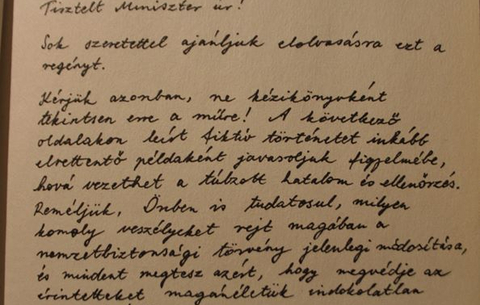 Tisztelt Miniszter úr!
Sok szeretettel ajánljuk elolvasásra ezt a
regényt.
Kérjük azonban, ne kézikönyvként
tekintsen erre a műre! A következő
oldalakon leírt fiktív történetet inkább
elrettentő példaként javasoljuk figyelmébe,
hová vezethet a túlzott hatalom és ellenőrzés.
Reméljük, Önben is tudatosul, milyen
komoly veszélyeket rejt magában a
nemzetbiztonsági törvény jelenlegi módosítása,
és mindent megtesz azért, hogy megvédje az
érintetteket magánéletük indokolatlan